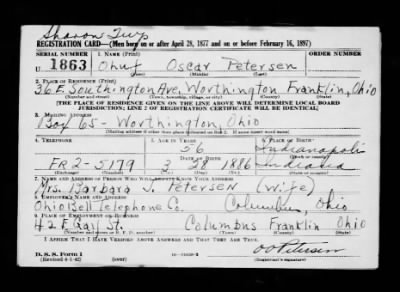 Sharon Twp
REGISTRATION CARD—(Men born on or after April 28, 1877 and on or before February 16, 1897)
SERIAL NUMBER 1. NAME (Print) ORDER NUMBER
U 1863 Oscar Petersen
(First) (Middle) (Last)
2. PLACE OF RESIDENCE (Print)
36 E. Southington Ave, Worthington Franklin, Ohio
(Number and street) (Town, township, village, or city) (County) (State)
[THE PLACE OF RESIDENCE GIVEN ON THE LINE ABOVE WILL DETERMINE LOCAL BOARD
JURISDICTION; LINE 2 OF REGISTRATION CERTIFICATE WILL BE IDENTICAL]
3. MAILING ADDRESS
Box 65 - Worthington, Ohio
[Mailing address if other than place indicated on line 2. If same insert word same]
4. TELEPHONE 5. AGE IN YEARS 6. PLACE OF BIRTH
56 Indianapolis
DATE OF BIRTH (Town or county)
FR 2-5179 2 28 1886 Indiana
(Exchange) (Number) (Mo.) (Day) (Yr.) (State or country)
7. NAME AND ADDRESS OF PERSON WHO WILL ALWAYS KNOW YOUR ADDRESS
Mrs. Barbara J. Petersen (wife)
8. EMPLOYER'S NAME AND ADDRESS
Ohio Bell Telephone Co. Columbus, Ohio
9. PLACE OF EMPLOYMENT OR BUSINESS
42 E. Gay St. Columbus Franklin Ohio
(Number and street or R. F. D. number) (Town) (County) (State)
I AFFIRM THAT I HAVE VERIFIED ABOVE ANSWERS AND THAT THEY ARE TRUE.
D. S. S. Form 1 O O Petersen
(Revised 4-1-42) (Registrant's signature)